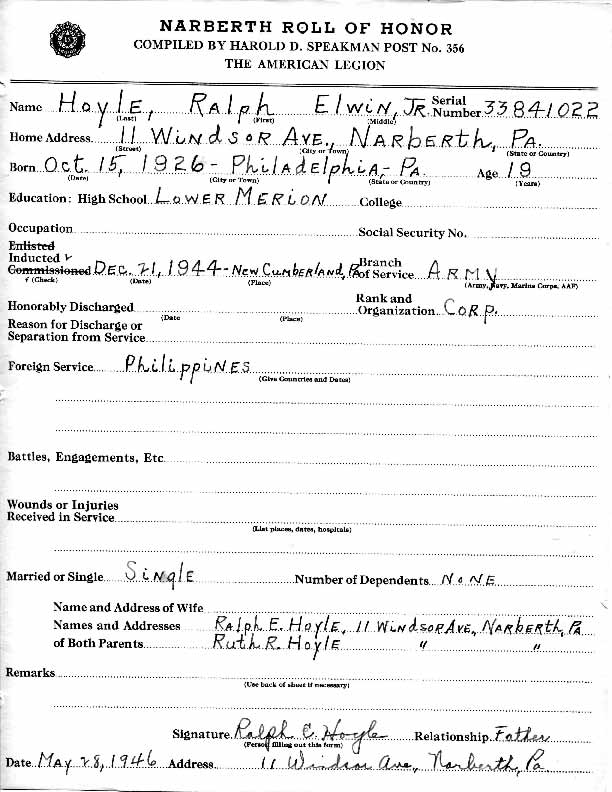 NARBERTH ROLL OF HONOR
COMPILED BY HAROLD D. SPEAKMAN POST No. 356
THE AMERICAN LEGION
Name Hoyle, Ralph Elwin, Jr. Serial Number 33841022
(Last) (First) (Middle)
Home Address 11 Windsor Ave., Narberth, Pa.
(Street) (City or Town) (State or Country)
Born Oct. 15, 1926 - Philadelphia, - Pa. Age 19
(Date) (City or Town) (State or Country) (Years)
Education: High School Lower Merion College
Occupation Social Security No.
Enlisted
Inducted ✓
Commissioned Dec. 21, 1944 - New Cumberland, Pa. Branch of Service ARMY
✓ (Check) (Date) (Place) (Army, Navy, Marine Corps, AAF)
Honorably Discharged Rank and Organization Corp.
(Date (Place)
Reason for Discharge or
Separation from Service
Foreign Service Philippines
(Give Countries and Dates)
Battles, Engagements, Etc
Wounds or Injuries
Received in Service
(List places, dates, hospitals)
Married or Single Single Number of Dependents None
Name and Address of Wife
Names and Addresses Ralph E. Hoyle, 11 Windsor Ave, Narberth, Pa
of Both Parents Ruth R. Hoyle " "
Remarks
(Use back of sheet if necessary)
Signature Ralph E. Hoyle Relationship Father
(Person filling out this form)
Date May 28, 1946 Address 11 Windsor Ave, Narberth, Pa.